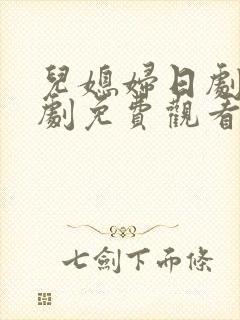 兒媳婦日劇
劇免費觀看
七劍下而條